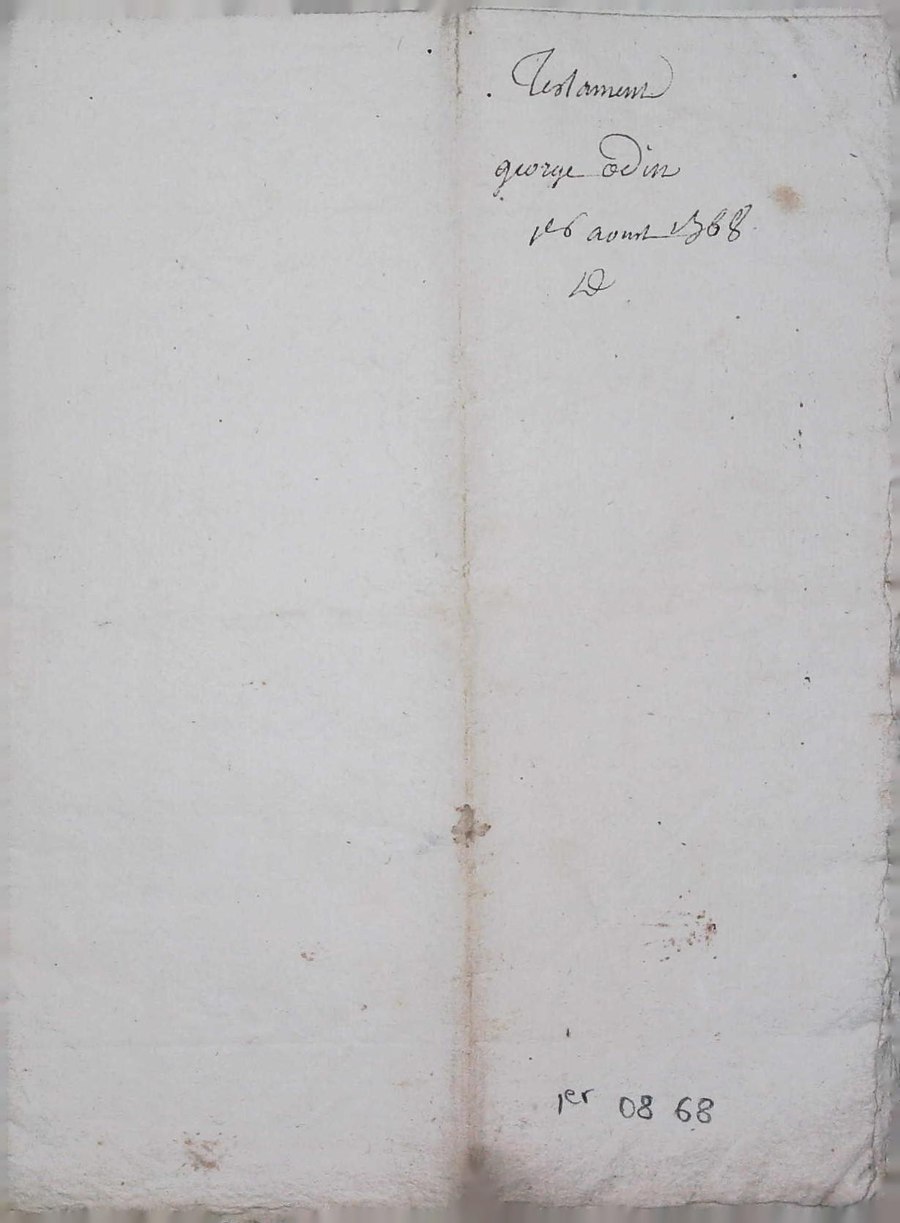 Testament
george odin
1er aoust 1768
1er 08 68